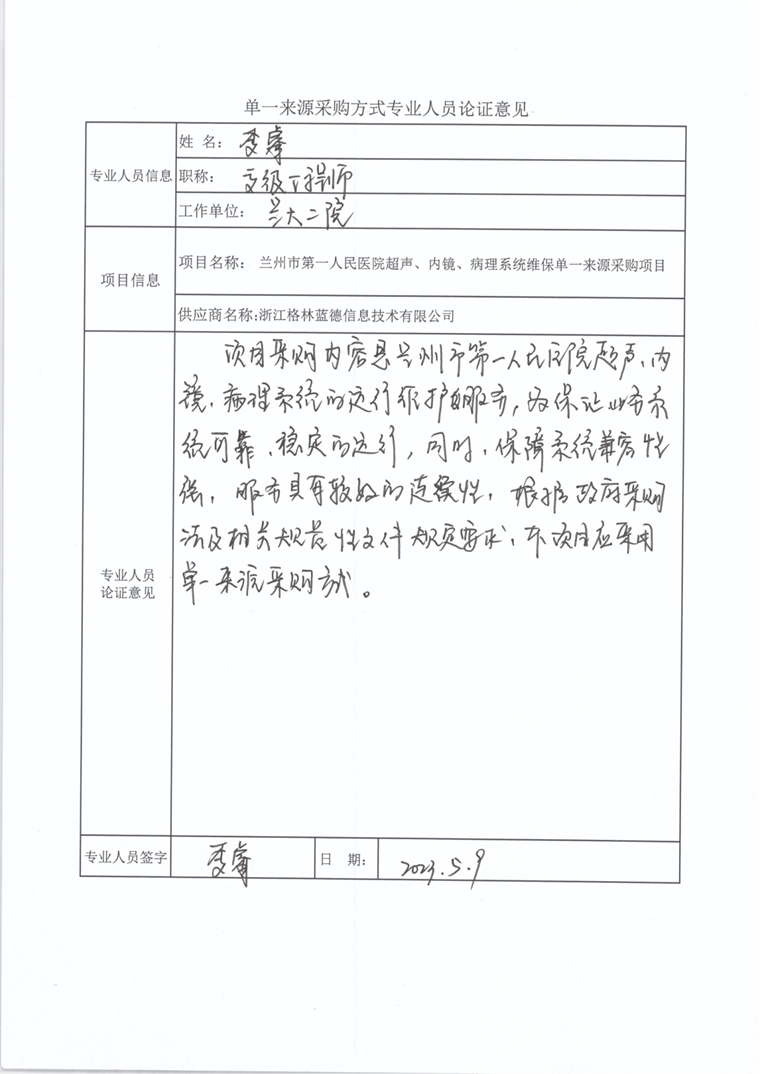 单一来源采购方式专业人员论证意见
专业人员信息
姓 名: 李睿
职称: 高级工程师
工作单位: 兰大二院
项目信息
项目名称: 兰州市第一人民医院超声、内镜、病理系统维保单一来源采购项目
供应商名称:浙江格林蓝德信息技术有限公司
专业人员
论证意见
项目采购内容是兰州市第一人民医院超声、内
镜、病理系统的运行维护服务,为保证业务系
统可靠、稳定的运行,同时,保障系统兼容性
强,服务具有较好的连续性,根据政府采购
法及相关规范性文件规定要求,本项目应采用
单一来源采购方式。
专业人员签字
李睿
日 期:
2023.5.9